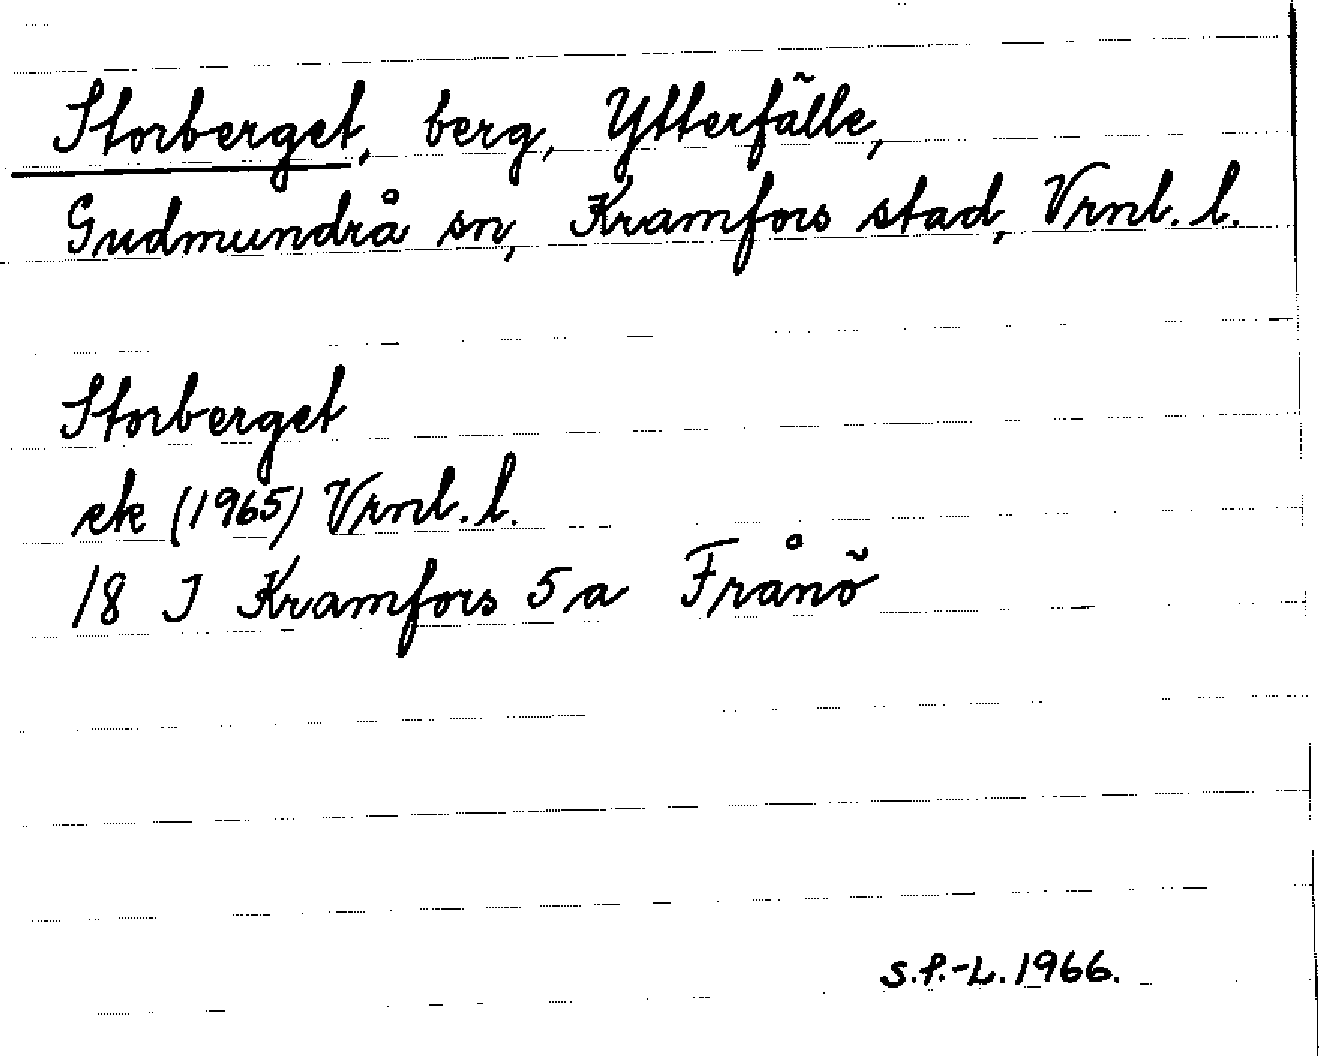 Storberget, berg, Ytterfälle,
Gudmundrå sn, Kramfors stad, Vrnl. l.
Storberget
ek (1965) Vrnl. l.
18 I Kramfors 5 a Frånö
S.P.-L. 1966.